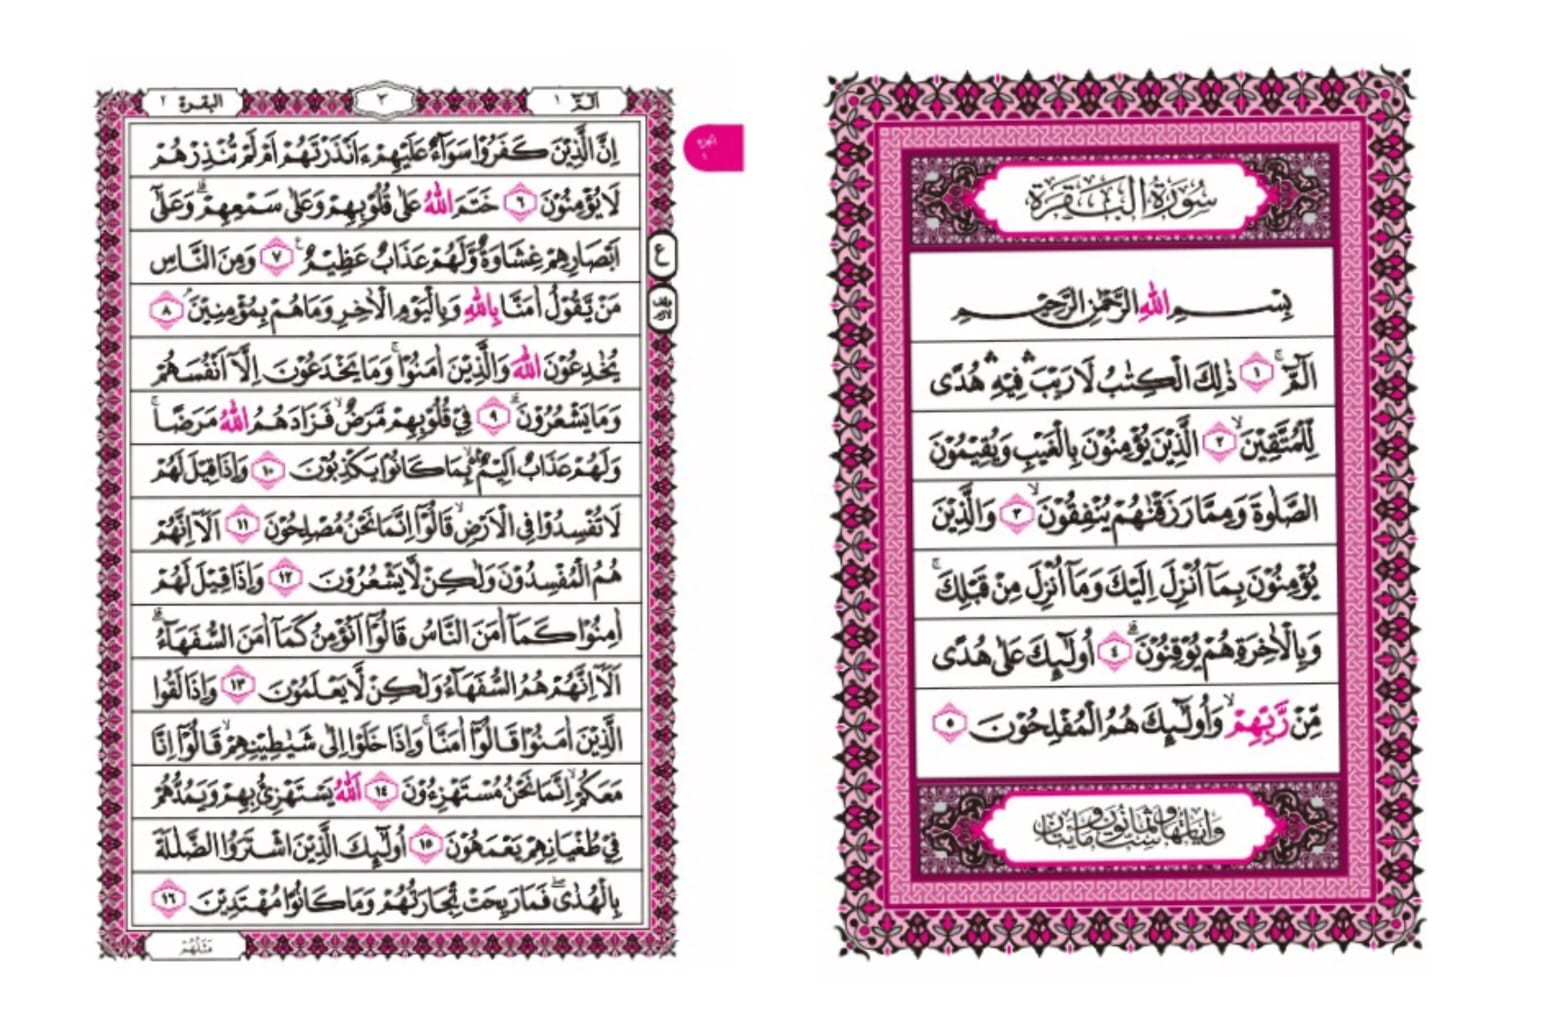 سُوْرَةُ الْبَقَرَةِ
بِسْمِ اللّٰهِ الرَّحْمٰنِ الرَّحِيْمِ
الٓمّٓ ۚ ۝١ ذٰلِكَ الْكِتٰبُ لَا رَيْبَ ۛ فِيْهِ ۛ هُدًى
لِّلْمُتَّقِيْنَ ۙ ۝٢ الَّذِيْنَ يُؤْمِنُوْنَ بِالْغَيْبِ وَيُقِيْمُوْنَ
الصَّلٰوةَ وَمِمَّا رَزَقْنٰهُمْ يُنْفِقُوْنَ ۙ ۝٣ وَالَّذِيْنَ
يُؤْمِنُوْنَ بِمَآ اُنْزِلَ اِلَيْكَ وَمَآ اُنْزِلَ مِنْ قَبْلِكَ ۚ
وَبِالْاٰخِرَةِ هُمْ يُوْقِنُوْنَ ۗ ۝٤ اُولٰٓئِكَ عَلٰى هُدًى
مِّنْ رَّبِّهِمْ ۙ وَاُولٰٓئِكَ هُمُ الْمُفْلِحُوْنَ ۝٥
وَاٰيَاتُهَا مِائَتَانِ وَسِتٌّ وَثَمَانُوْنَ
الٓمّٓ ١
٣
البقرة ٢
الجزء ١
اِنَّ الَّذِيْنَ كَفَرُوْا سَوَآءٌ عَلَيْهِمْ ءَاَنْذَرْتَهُمْ اَمْ لَمْ تُنْذِرْهُمْ
لَا يُؤْمِنُوْنَ ۝٦ خَتَمَ اللّٰهُ عَلٰى قُلُوْبِهِمْ وَعَلٰى سَمْعِهِمْ ۗ وَعَلٰٓى
اَبْصَارِهِمْ غِشَاوَةٌ وَّلَهُمْ عَذَابٌ عَظِيْمٌ ۝٧ وَمِنَ النَّاسِ
ع
مَنْ يَّقُوْلُ اٰمَنَّا بِاللّٰهِ وَبِالْيَوْمِ الْاٰخِرِ وَمَا هُمْ بِمُؤْمِنِيْنَ ۘ ۝٨
وقف لازم
يُخٰدِعُوْنَ اللّٰهَ وَالَّذِيْنَ اٰمَنُوْا ۚ وَمَا يَخْدَعُوْنَ اِلَّآ اَنْفُسَهُمْ
وَمَا يَشْعُرُوْنَ ۗ ۝٩ فِيْ قُلُوْبِهِمْ مَّرَضٌ ۙ فَزَادَهُمُ اللّٰهُ مَرَضًا ۚ
وَلَهُمْ عَذَابٌ اَلِيْمٌ ۢ ۙ بِمَا كَانُوْا يَكْذِبُوْنَ ۝١٠ وَاِذَا قِيْلَ لَهُمْ
لَا تُفْسِدُوْا فِى الْاَرْضِ ۙ قَالُوْٓا اِنَّمَا نَحْنُ مُصْلِحُوْنَ ۝١١ اَلَآ اِنَّهُمْ
هُمُ الْمُفْسِدُوْنَ وَلٰكِنْ لَّا يَشْعُرُوْنَ ۝١٢ وَاِذَا قِيْلَ لَهُمْ
اٰمِنُوْا كَمَآ اٰمَنَ النَّاسُ قَالُوْٓا اَنُؤْمِنُ كَمَآ اٰمَنَ السُّفَهَآءُ ۗ
اَلَآ اِنَّهُمْ هُمُ السُّفَهَآءُ وَلٰكِنْ لَّا يَعْلَمُوْنَ ۝١٣ وَاِذَا لَقُوا
الَّذِيْنَ اٰمَنُوْا قَالُوْٓا اٰمَنَّا ۚ وَاِذَا خَلَوْا اِلٰى شَيٰطِيْنِهِمْ ۙ قَالُوْٓا اِنَّا
مَعَكُمْ ۙ اِنَّمَا نَحْنُ مُسْتَهْزِءُوْنَ ۝١٤ اَللّٰهُ يَسْتَهْزِئُ بِهِمْ وَيَمُدُّهُمْ
فِيْ طُغْيَانِهِمْ يَعْمَهُوْنَ ۝١٥ اُولٰٓئِكَ الَّذِيْنَ اشْتَرَوُا الضَّلٰلَةَ
بِالْهُدٰى ۖ فَمَا رَبِحَتْ تِّجَارَتُهُمْ وَمَا كَانُوْا مُهْتَدِيْنَ ۝١٦
مَثَلُهُمْ